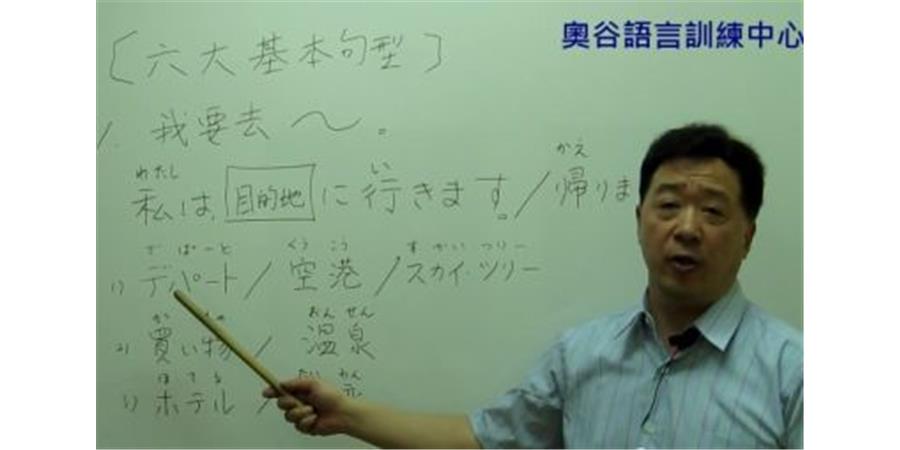 奧谷語言訓練中心
〔六大基本句型〕
1. 我要去～。
わたし い かえ
私は 目的地 に行きます。/帰りま
でぱーと くうこう すかいつりー
1) デパート / 空港 / スカイ・ツリー
か おんせん
2) 買い物 / 温泉
ほてる たいわん
3) ホテル /